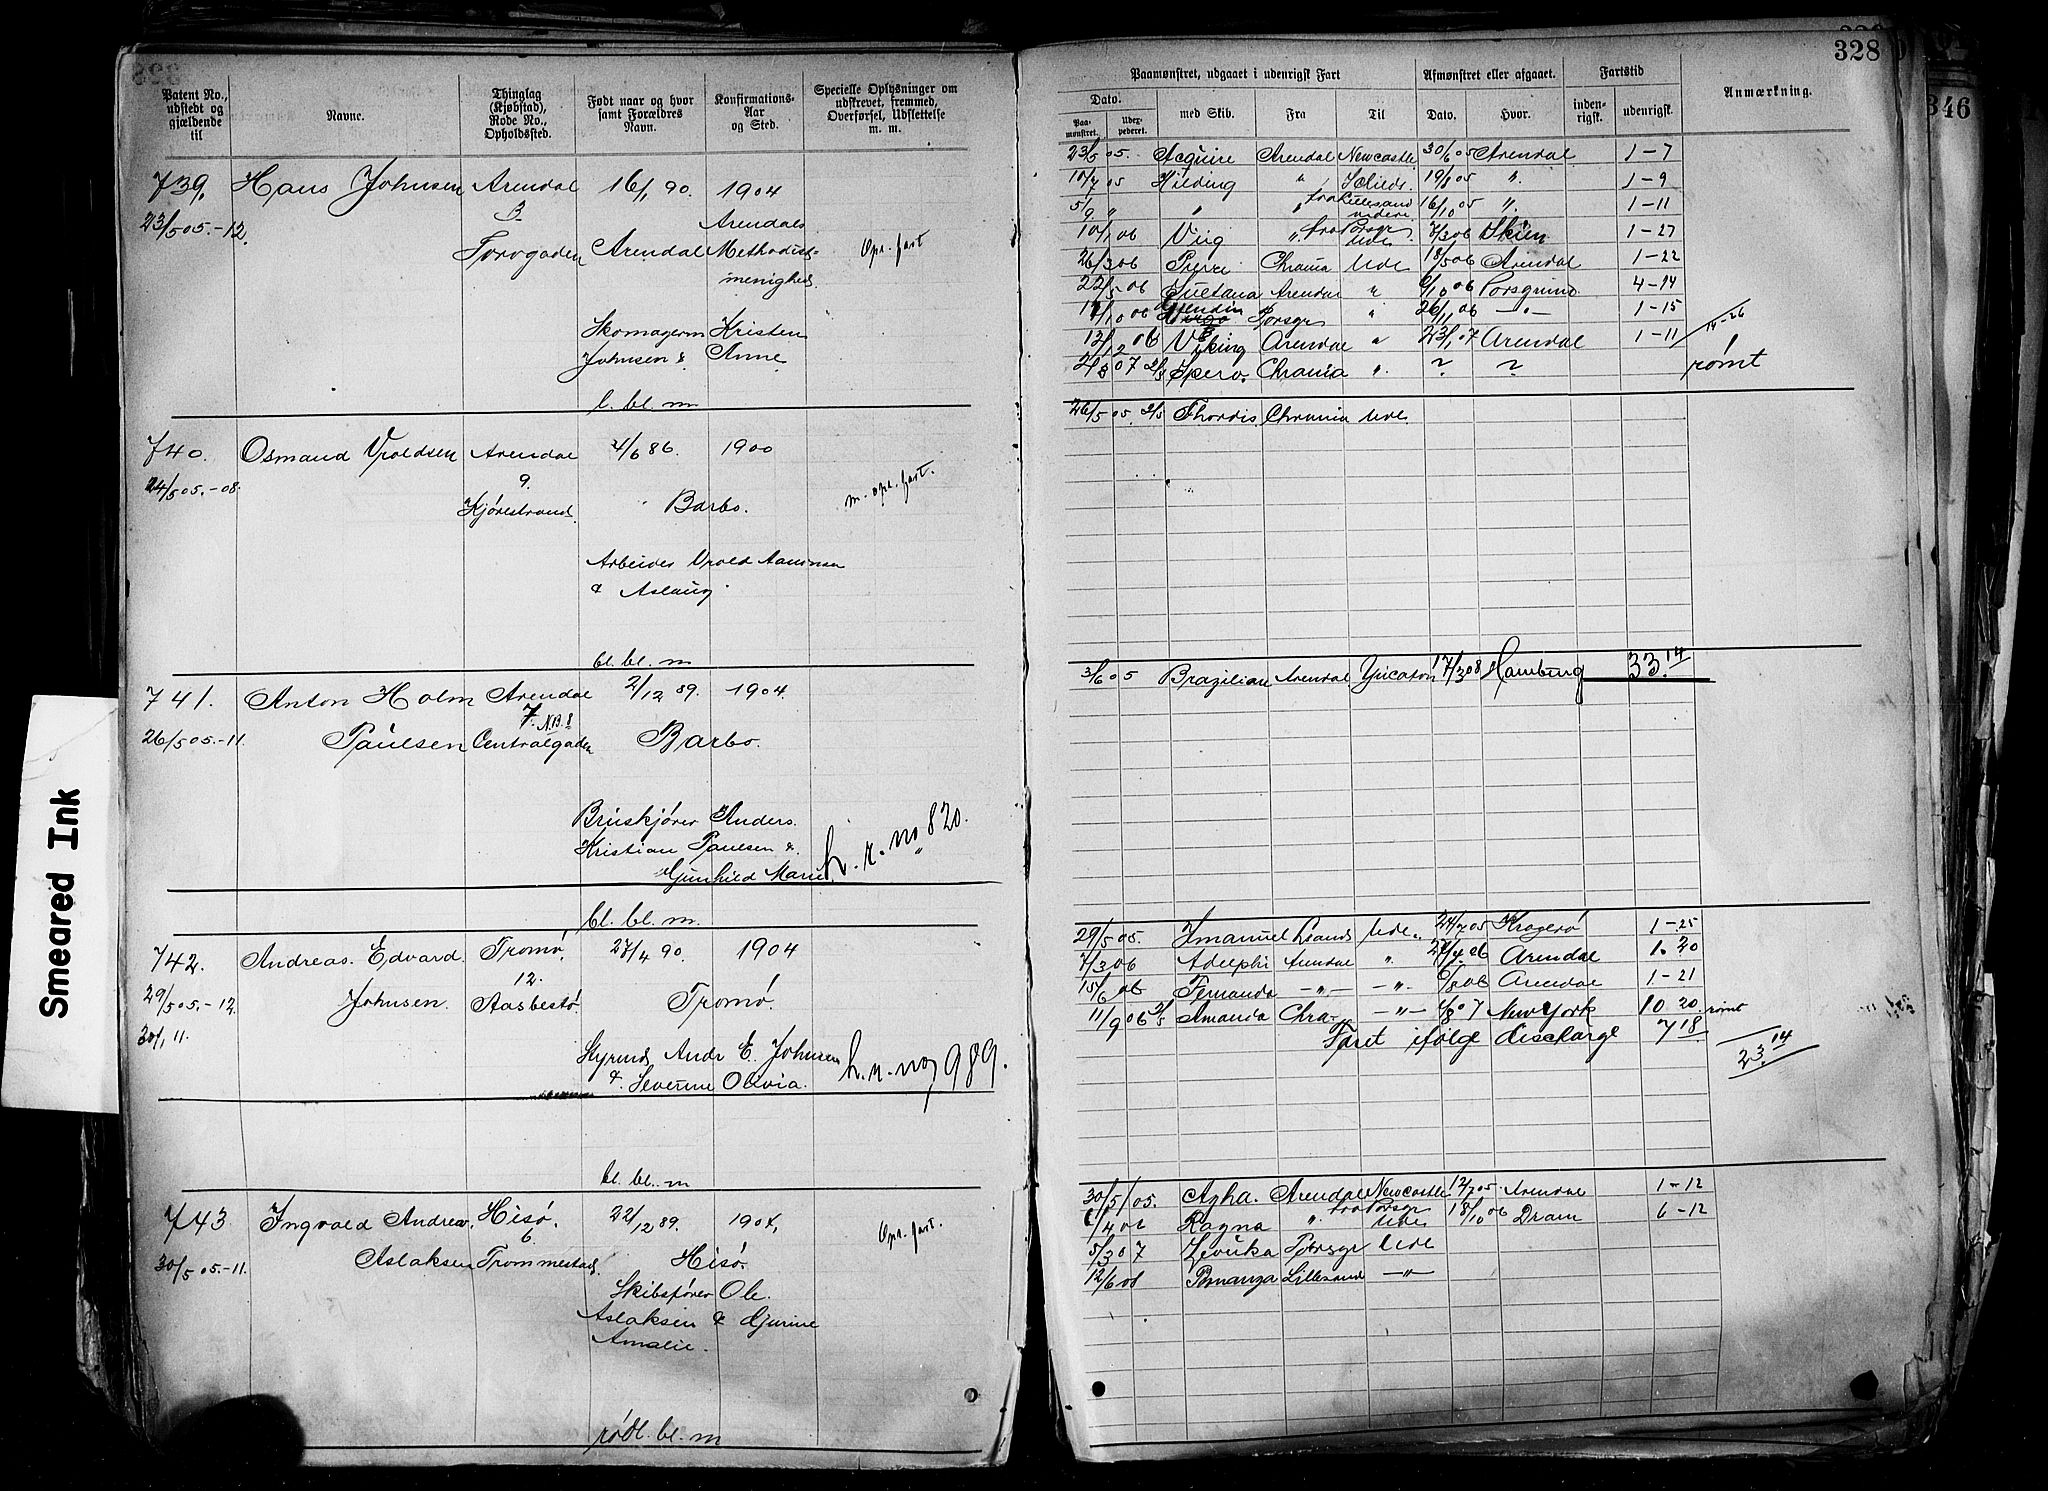 328
346
Smeared Ink
Patent No., udstedt og gjældende til
Navne.
Thinglag (Kjøbstad), Rode No., Opholdssted.
Født naar og hvor samt Forældres Navn.
Konfirmations-Aar og Sted.
Specielle Oplysninger om udskrevet, fremmed, Overførsel, Udslettelse m. m.
Paamønstret, udgaaet i udenrigsk Fart
Afmønstret eller afgaaet.
Fartstid
Anmærkning.
Dato.
Paa-mønstret.
Udex-pederet.
med Skib.
Fra
Til
Dato.
Hvor.
inden-rigsk.
udenrigsk.
739. Hans Johnsen Arendal 16/1 90. 1904
23/5 05.-12. 3 Arendals
Torvgaden Arendal Methodist- Opr. fart
menighed.
Skomagerm Kristen
Johnsen & Anne
l. bl. m
23/5 05. Acquire Arendal Newcastle 30/6 05 Arendal 1-7
10/7 05 Hilding " Schieds. 19/8 05 ". 1-9
5/9 " " " fra Lillesand videre 16/10 05 ". 1-11
10/1 06 Viig ". fra Porsgr Ude 7/3 06 Skien 1-27
26/3 06 Chrania Ude 18/5 06 Arendal 1-22
22/5 06 Suetana Arendal " /10 06 Porsgrund 4-14
/10 06 Porsgr " 26/11 06 -"- 1-15
13/12 06 Viking Arendal " 23/1 07 Arendal 1-11 14-26
2/3 07 2/3 Spero. Chrania ". ? ? rømt
740. Osmand Uvoldsen Arendal 4/6 86. 1900
24/5 05.-08. 9.
Kjørestrand Barbo. m. opr. fart.
Arbeider Uvold Aanonsen
& Aslaug
bl. bl. m
26/5 05. 2/5 Thordis Chrania Ude
741. Anton Holm Arendal 2/12 89. 1904.
7. N.B. 8
26/5 05.-11. Paulsen Centralgaden Barbo.
Bruskjører Anders
Kristian Paulsen &
Gunhild Marie h. r. no 820.
bl. bl. m.
3/6 05 Brazilian Arendal Yucaton 17/3 08 Hamburg 33.14
742. Andreas Edvard Tromø. 27/4 90. 1904
12.
29/5 05.-12 Johnsen. Aasbestø. Tromø.
30/1 11.
Styrmd Andr E. Johnsen
& Severine Olivia. h. r. no, 989.
bl. bl. m
29/5 05. Imanuel Lsand Ude 24/7 05 Kragerø 1-25
7/3 06 Adelphi Arendal " 27/4 06 Arendal 1. 20
15/6 06 Fernanda -"- -"- 6/8 06 Arendal 1-21
11/9 06 Amanda Chra- -"- /8 07 New York 10 20 rømt
Faret ifølge discharge 7 18
23.14
743. Ingvald Andreas Hisø. 22/12 89. 1904,
6 Opr. fart.
30/5 05.-11. Aslaksen Trommestad. Hisø.
Skibsfører Ole
Aslaksen & Gurine
Amalie.
rødl. bl. m
30/5 05. Agha. Arendal Newcastle 12/7 05. Arendal 1-12
/4 06 Ragna ". fra Porsgr Ude 18/10 06 Dram 6-12
5/3 07 Zevuka Porsgr Ude
12/6 08 Bonanza Lillesand -"-